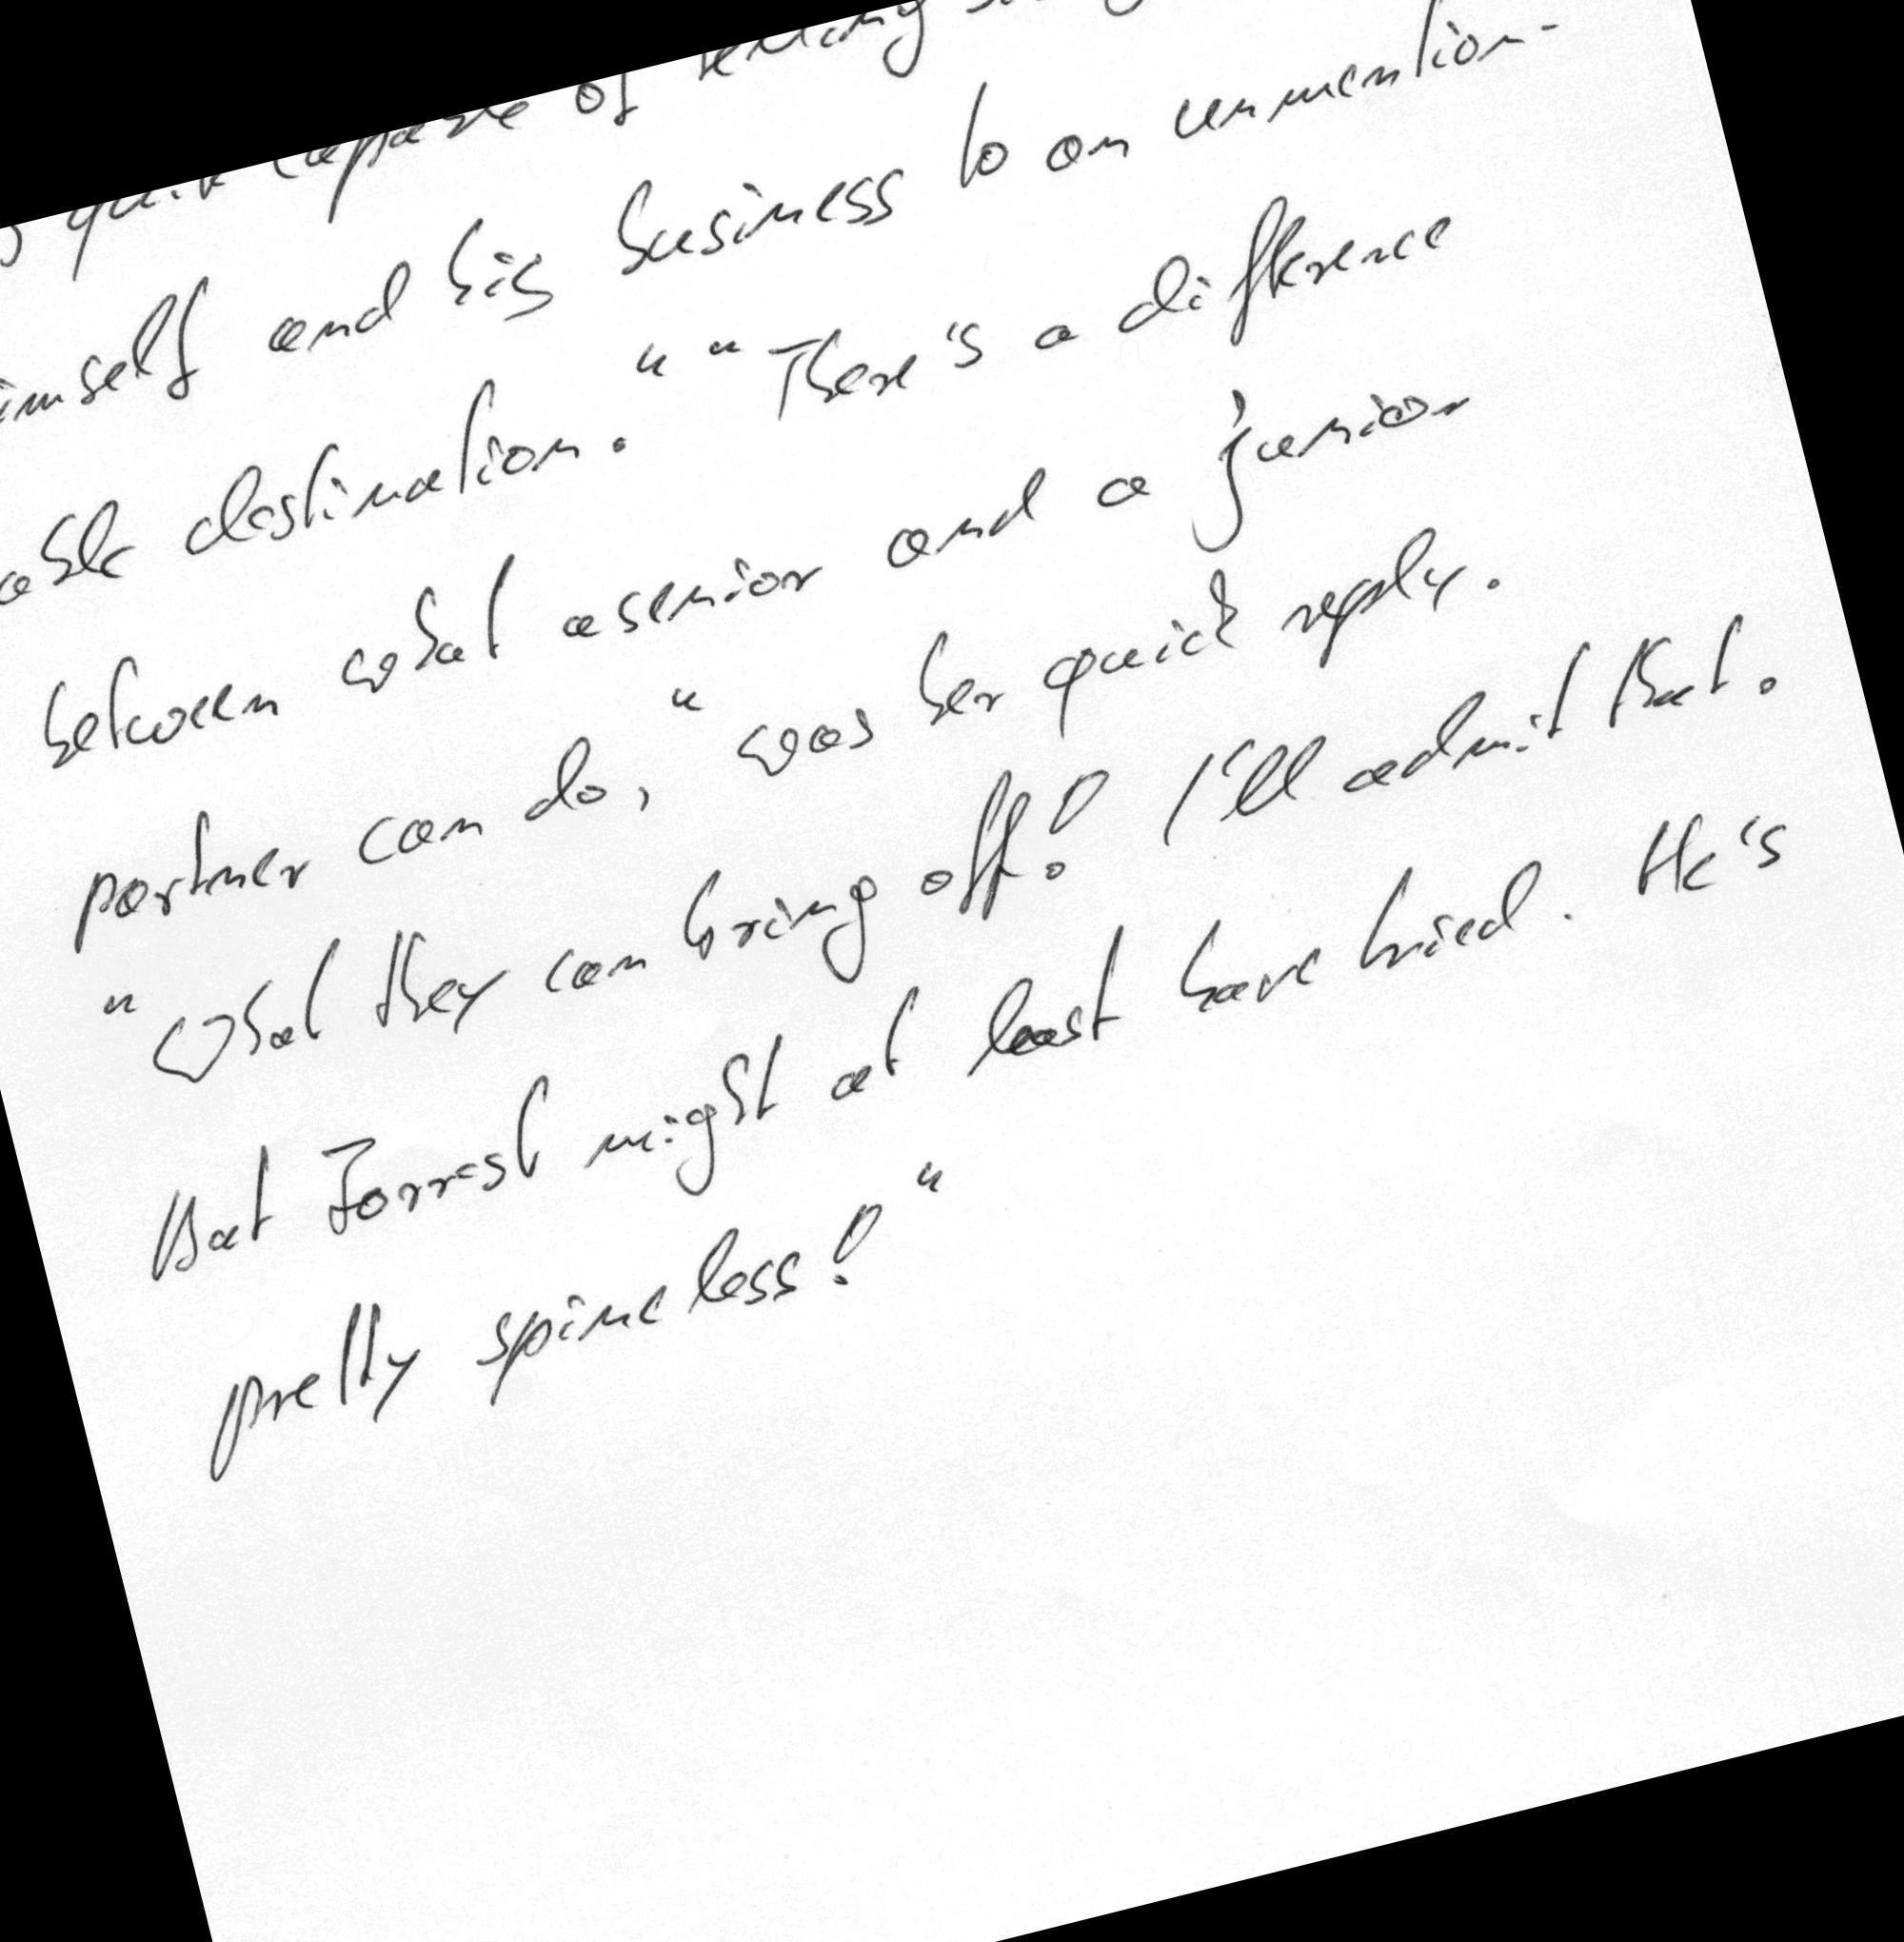 quite capable of telling
himself and his business to an unmention-
able destination." "There's a difference
between what a senior and a junior
partner can do," was her quick reply.
"What they can bring off! I'll admit that.
But Forrest might at least have tried. He's
pretty spineless!"